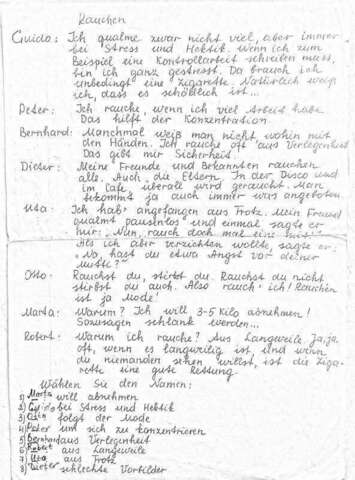 Rauchen
Guido: Ich qualme zwar nicht viel, aber immer
bei Stress und Hektik. Wenn ich zum
Beispiel eine Kontrollarbeit schreiben muss,
bin ich ganz gestresst. Da brauch ich
unbedingt eine Zigarette. Natürlich weiß
ich, dass es schädlich ist...
Peter: Ich rauche, wenn ich viel Arbeit habe.
Das hilft der Konzentration.
Bernhard: Manchmal weiß man nicht wohin mit
den Händen. Ich rauche oft aus Verlegenheit
Das gibt mir Sicherheit
Dieter: Meine Freunde und Bekannten rauchen
alle. Auch die Eltern. In der Disco und
im Café überall wird geraucht. Man
bekommt ja auch immer was angeboten
Uta: Ich hab' angefangen aus Trotz. Mein Freund
qualmt pausenlos und einmal sagte er
nur: "Nun, rauch doch mal eine mit!"
Als ich aber verzichten wollte, sagte er:
"Na, hast du etwa Angst vor deiner
Mutti?"
Otto: Rauchst du, stirbst du. Rauchst du nicht
stirbst du auch. Also rauch' ich! Rauchen
ist ja Mode!
Marta: Warum? Ich will 3-5 Kilo abnehmen!
Sozusagen schlank werden...
Robert: Warum ich rauche? Aus Langeweile. Ja, ja
oft, wenn es langweilig ist und wenn
du niemanden sehen willst, ist die Ziga-
rette eine gute Rettung.
Wählen Sie den Namen:
1) Marta will abnehmen
2) Guido bei Stress und Hektik
3) folgt der Mode
4) Peter um sich zu konzentrieren
5) Bernhard aus Verlegenheit
6) Robert aus Langeweile
7) Uta aus Trotz
8) Dieter schlechte Vorbilder